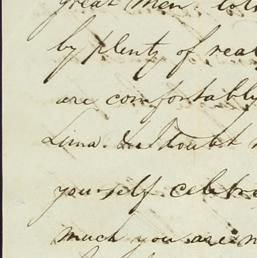 great men
by plenty of
are comfortably
Lima. No doubt
yourself
much you are